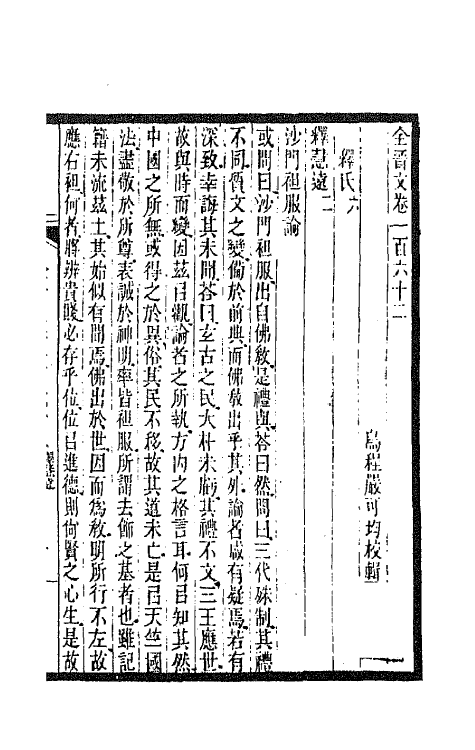 全晉文卷一百六十二
烏程嚴可均校輯
釋氏六
釋慧遠二
沙門袒服論
或問曰沙門袒服出自佛敎是禮與荅曰然問曰三代殊制其禮
不同質文之變備於前典而佛敎出乎其外論者咸有疑焉若有
深致幸誨其未聞荅曰玄古之民大朴未虧其禮不文三王應世
故與時而變因茲㠯觀論者之所執方內之格言耳何㠯知其然
中國之所無或得之於異俗其民不移故其道未亡是㠯天竺國
法盡敬於所尊表誠於神明率皆袒服所謂去飾之基者也雖記
籍未流茲土其始似有聞焉佛出於世因而爲敎明所行不左故
應右袒何者將辨貴賤必存乎位位㠯進德則尙賢之心生是故